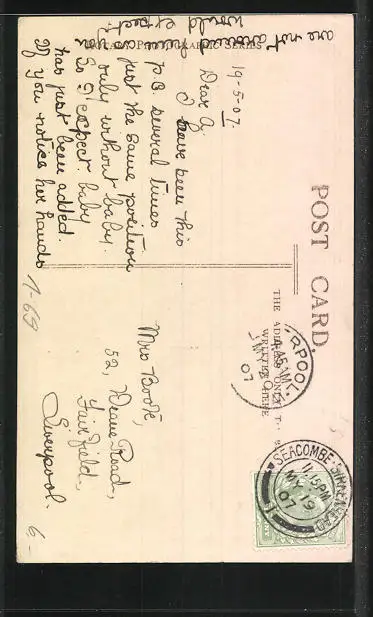 POST CARD
THE ADDRESS ONLY TO BE
WRITTEN HERE
19-5-07.
Dear A,
I have seen this
p.c several times
just the same position
only without baby.
So I expect baby
has just been added.
If you notice her hands
are not around him as you
would expect.
Mrs Boote,
52, Deane Road,
Fairfield,
Liverpool.
SEACOMBE. BIRKENHEAD
11.15PM
MY 19
07
RPOOL
AM
07
1-69
6-